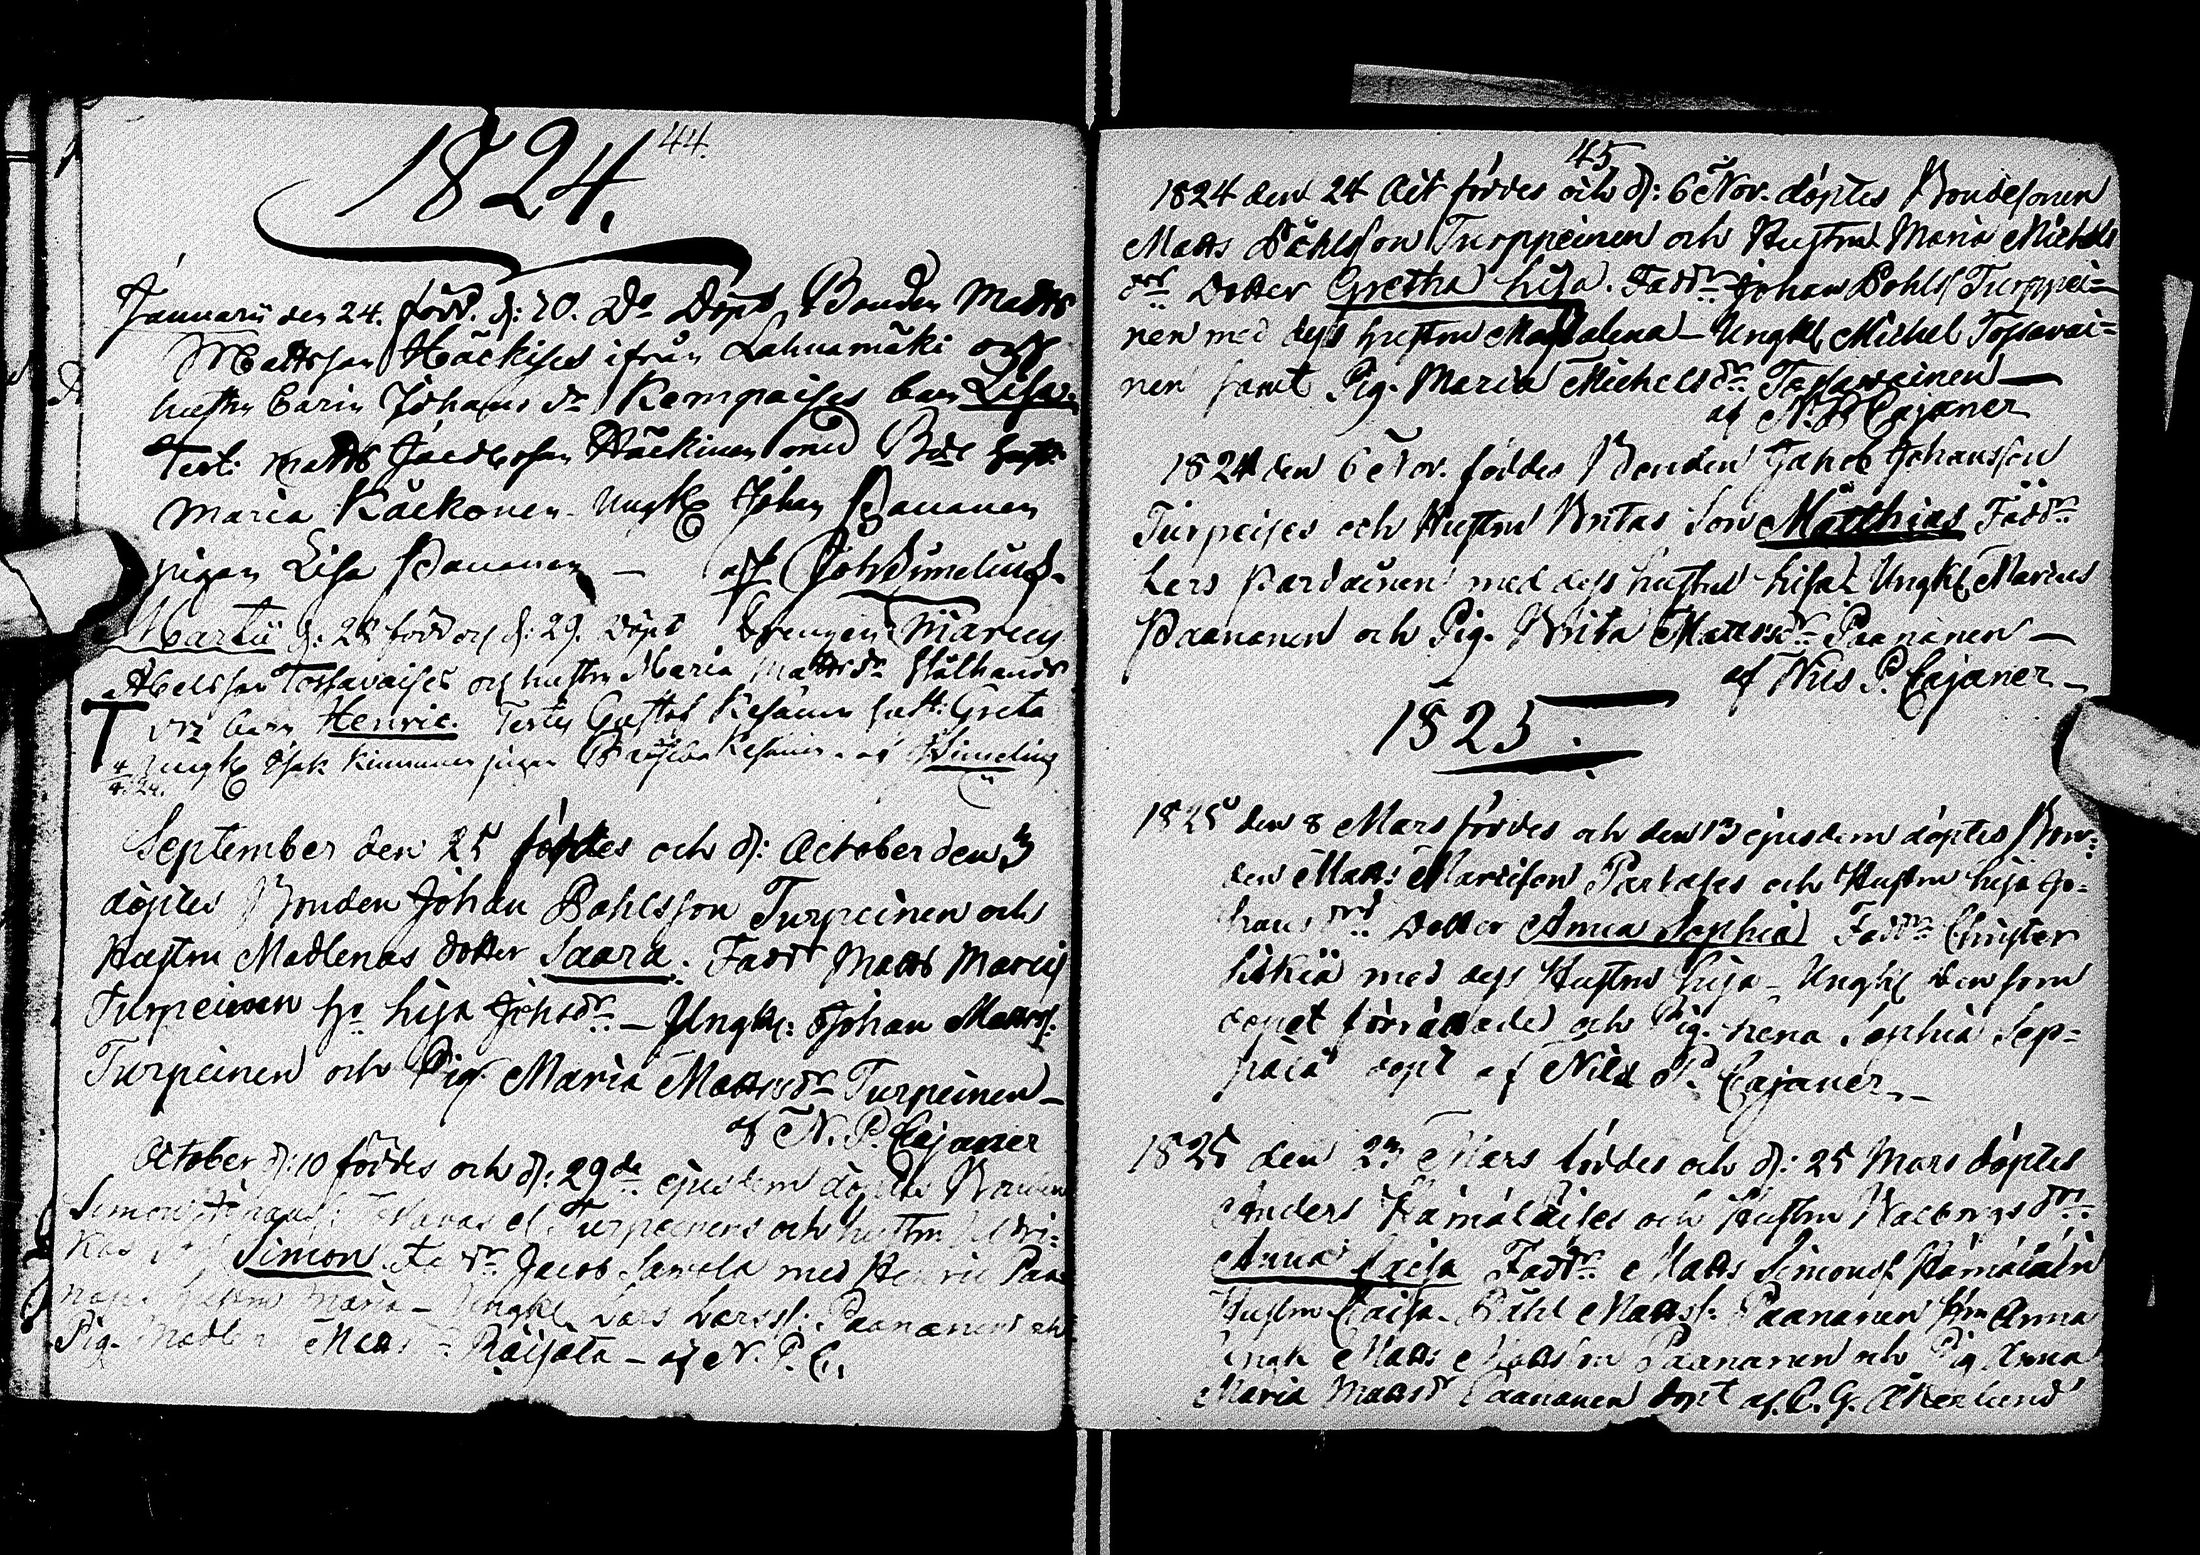 44.
1824.
Januarii den 24. född. d: 20. Do Döpt Bonden Matts
Mattsson Häckises ifrån Lahnamäki och
hustru Carin Johans dr Kempaises barn Lisa.
Test: Matts Jacobsson Häckinen med Bde hust:
Maria Räckonen. Ungk Johan Pananen
pigan Lisa Pananen — af Joh Himelius.
Martii d: 28 född och d: 29. Döpt Drengen Marcus
Abelsson Tossavaises och hustru Maria Matts dr
drs barn Henric. Testes Gustaf Kesäinen hust: Greta
Ungk Isak Kinnunen pigan Kesäinen af Himelius
September den 25 föddes och d: October den 3
döptes Bonden Johan Pahlsson Turpeinen och
Hustru Madlenas dotter Saara. Faddr Matts Marcuss
Turpeinen Ho Lisa Johsdr — Ungk: Johan Mattss:
Turpeinen och Pig. Maria Mattsdr Turpeinen —
af N. P. Cajaner
October d: 10 föddes och d: 29de ejusdem döptes Bonden
Simon Turpeinens och hustru Ulri=
kas Simon. Faddr Jacob Sawola med Henric Paa
hustru Maria — Ungk Lars Larss: Paananen och
Pig. Madlena Räisätä — af N. P. C.
45
1824 den 24 Oct föddes och d: 6 Nov. döptes Bondesonen
Matts Påhlsson Turppeinen och Hustru Maria Michels
drs Dotter Gretha Lisa. Faddr Johan Pohlss Turppei=
nen med dess hustru Magdalena — Ungk Michel Tossavai=
nen samt Pig. Maria Michelsdr Tossawainen —
af N. P. Cajaner
1824 den 6 Nov. föddes Bonden Jacob Johansson
Turpeises och Hustru Britas Son Matthias Faddr
Lars Partainen med dess hustru Lisa. Ungk Marcus
Paananen och Pig. Brita Mattsdr Paananen —
af Nils P. Cajaner —
1825.
1825 den 8 Mars föddes och den 13 ejusdem döptes Bon=
den Matts Martison Partases och Hustru Lisa Jo=
hans drs Dotter Anna Sophia Faddr Christer
Liskiä med dess Hustru Lisa — Ungk den som
dopet förrättade och Pig. Lena Sophia Sep=
pälä döpt af Nils P. Cajaner —
1825 den 23 Mars föddes och d: 25 Mars döptes
Anders Hämäläises och Hustru Walborgs dr
Anna Caisa Faddr Matts Simonss Hämäläin
Hustru Caisa. Påhl Mattss: Paananen Hru Anna
Ungk Matts Mattsson Paananen och Pig Anna
Maria Mattsdr Paananen döpt af C. G. Åkerlund